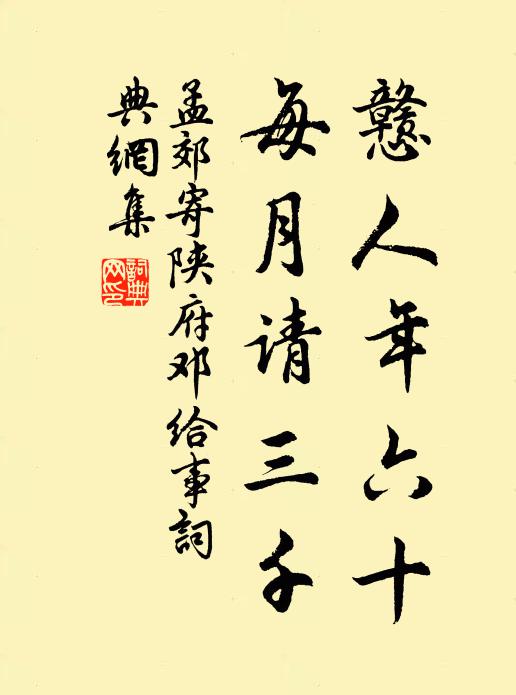 戆人年六十
每月请三千
孟郊寄陕府邓给事詞
典網集
詞典
网印